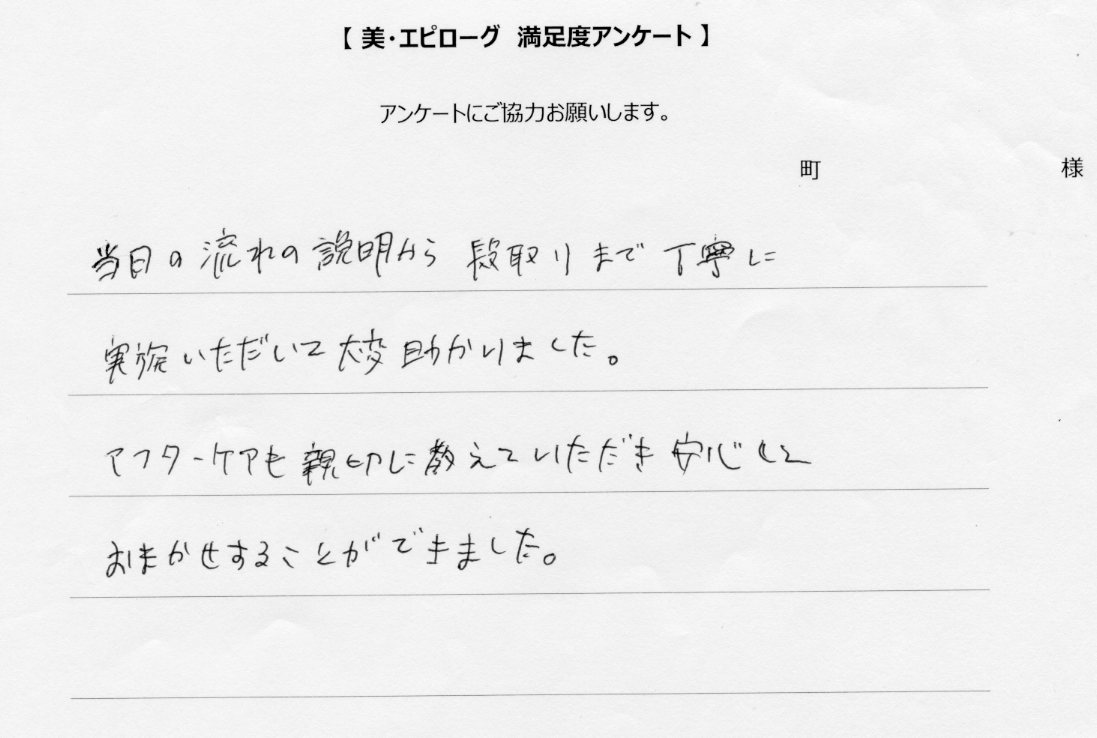 【 美・エピローグ 満足度アンケート 】
アンケートにご協力お願いします。
町 様
当日の流れの説明から 段取りまで 丁寧に
実施いただいて 大変 助かりました。
アフターケアも 親切に 教えていただき 安心して
おまかせすることができました。